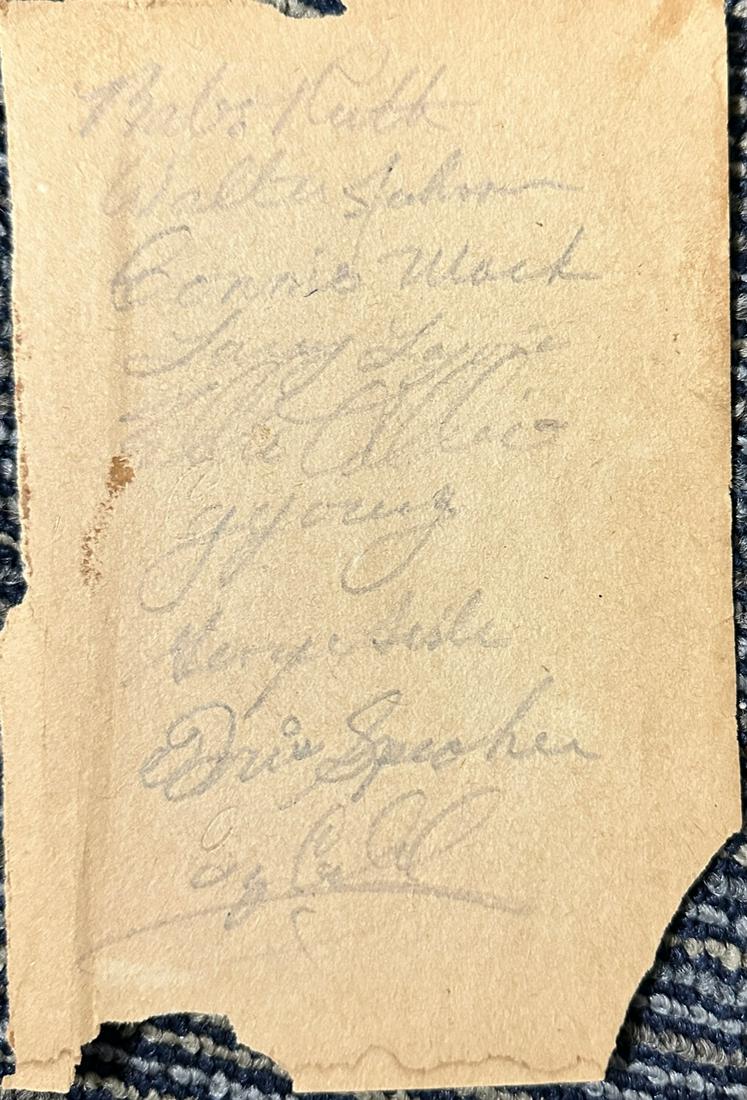 Babe Ruth
Walter Johnson
Connie Mack
Larry Lajoie
Eddie Collins
Cy Young
George Sisler
Tris Speaker
Ty Cobb